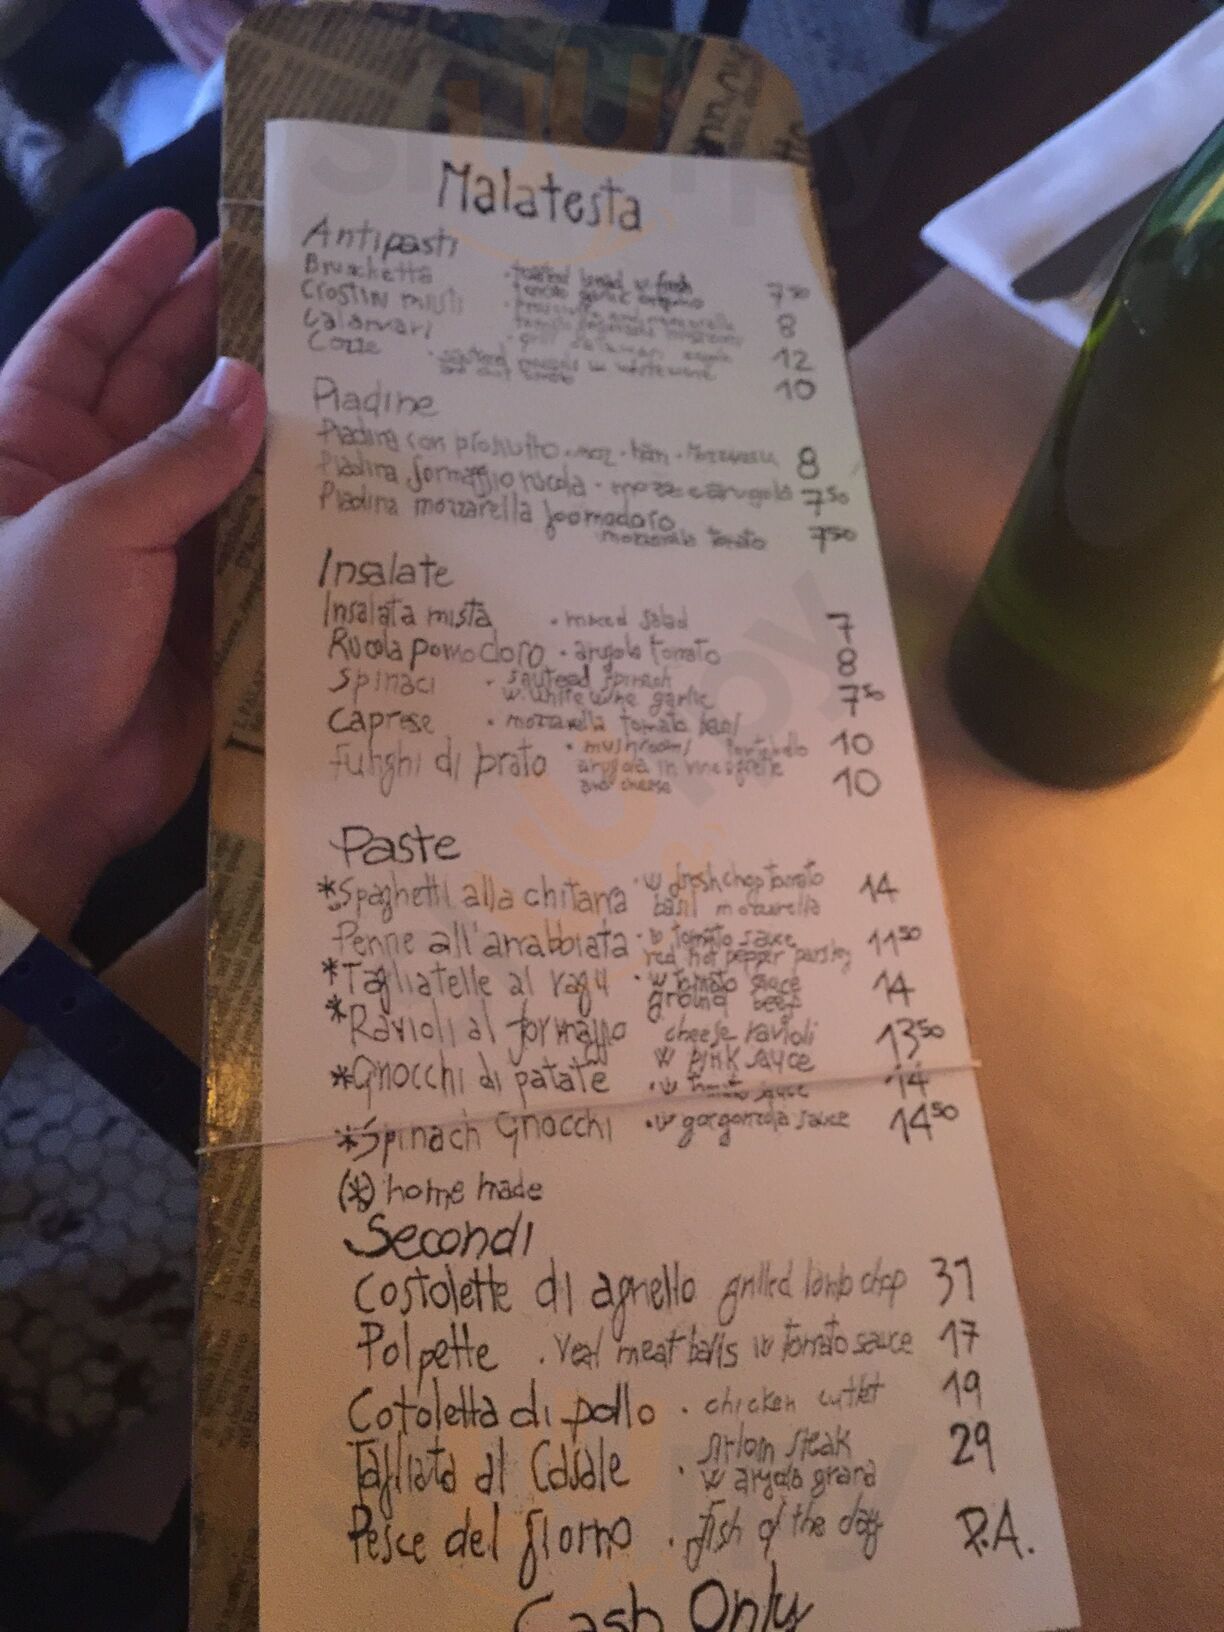 Malatesta
Antipasti
Bruschetta · toasted bread w fresh 7 50
tomato garlic oregano
Crostini misti · prosciutto and mozzarella 8
tomato
Calamari · grill calamari 12
Cozze · sauteed mussels w white wine 10
Piadine
Piadina con prosciutto · moz · ham · 8
Piadina formaggio rucola · mozz e arugola 7 50
Piadina mozzarella pomodoro
mozzarella tomato 7 50
Insalate
Insalata mista · mixed salad 7
Rucola pomodoro · arugola tomato 8
Spinaci · sauteed spinach 7 50
w. white wine garlic
Caprese · mozzarella tomato basil 10
Funghi di prato · mushrooms Portobello 10
arugola in vinegrette
and cheese
Paste
*Spaghetti alla chitarra · w fresh chop tomato 14
basil mozzarella
Penne all'arrabbiata · w tomato sauce 11 50
red hot pepper parsley
*Tagliatelle al ragu · w tomato sauce 14
ground beef
*Ravioli al formaggio cheese ravioli 13 50
w pink sauce
*Gnocchi di patate · w tomato sauce 14
*Spinach Gnocchi · w gorgonzola sauce 14 50
(*) home made
Secondi
Costolette di agnello grilled lamb chop 31
Polpette · Veal meat balls w tomato sauce 17
Cotoletta di pollo · chicken cutlet 19
Tagliata al Casale · sirloin steak 29
w arugola grana
Pesce del giorno · fish of the day P.A.
Cash Only